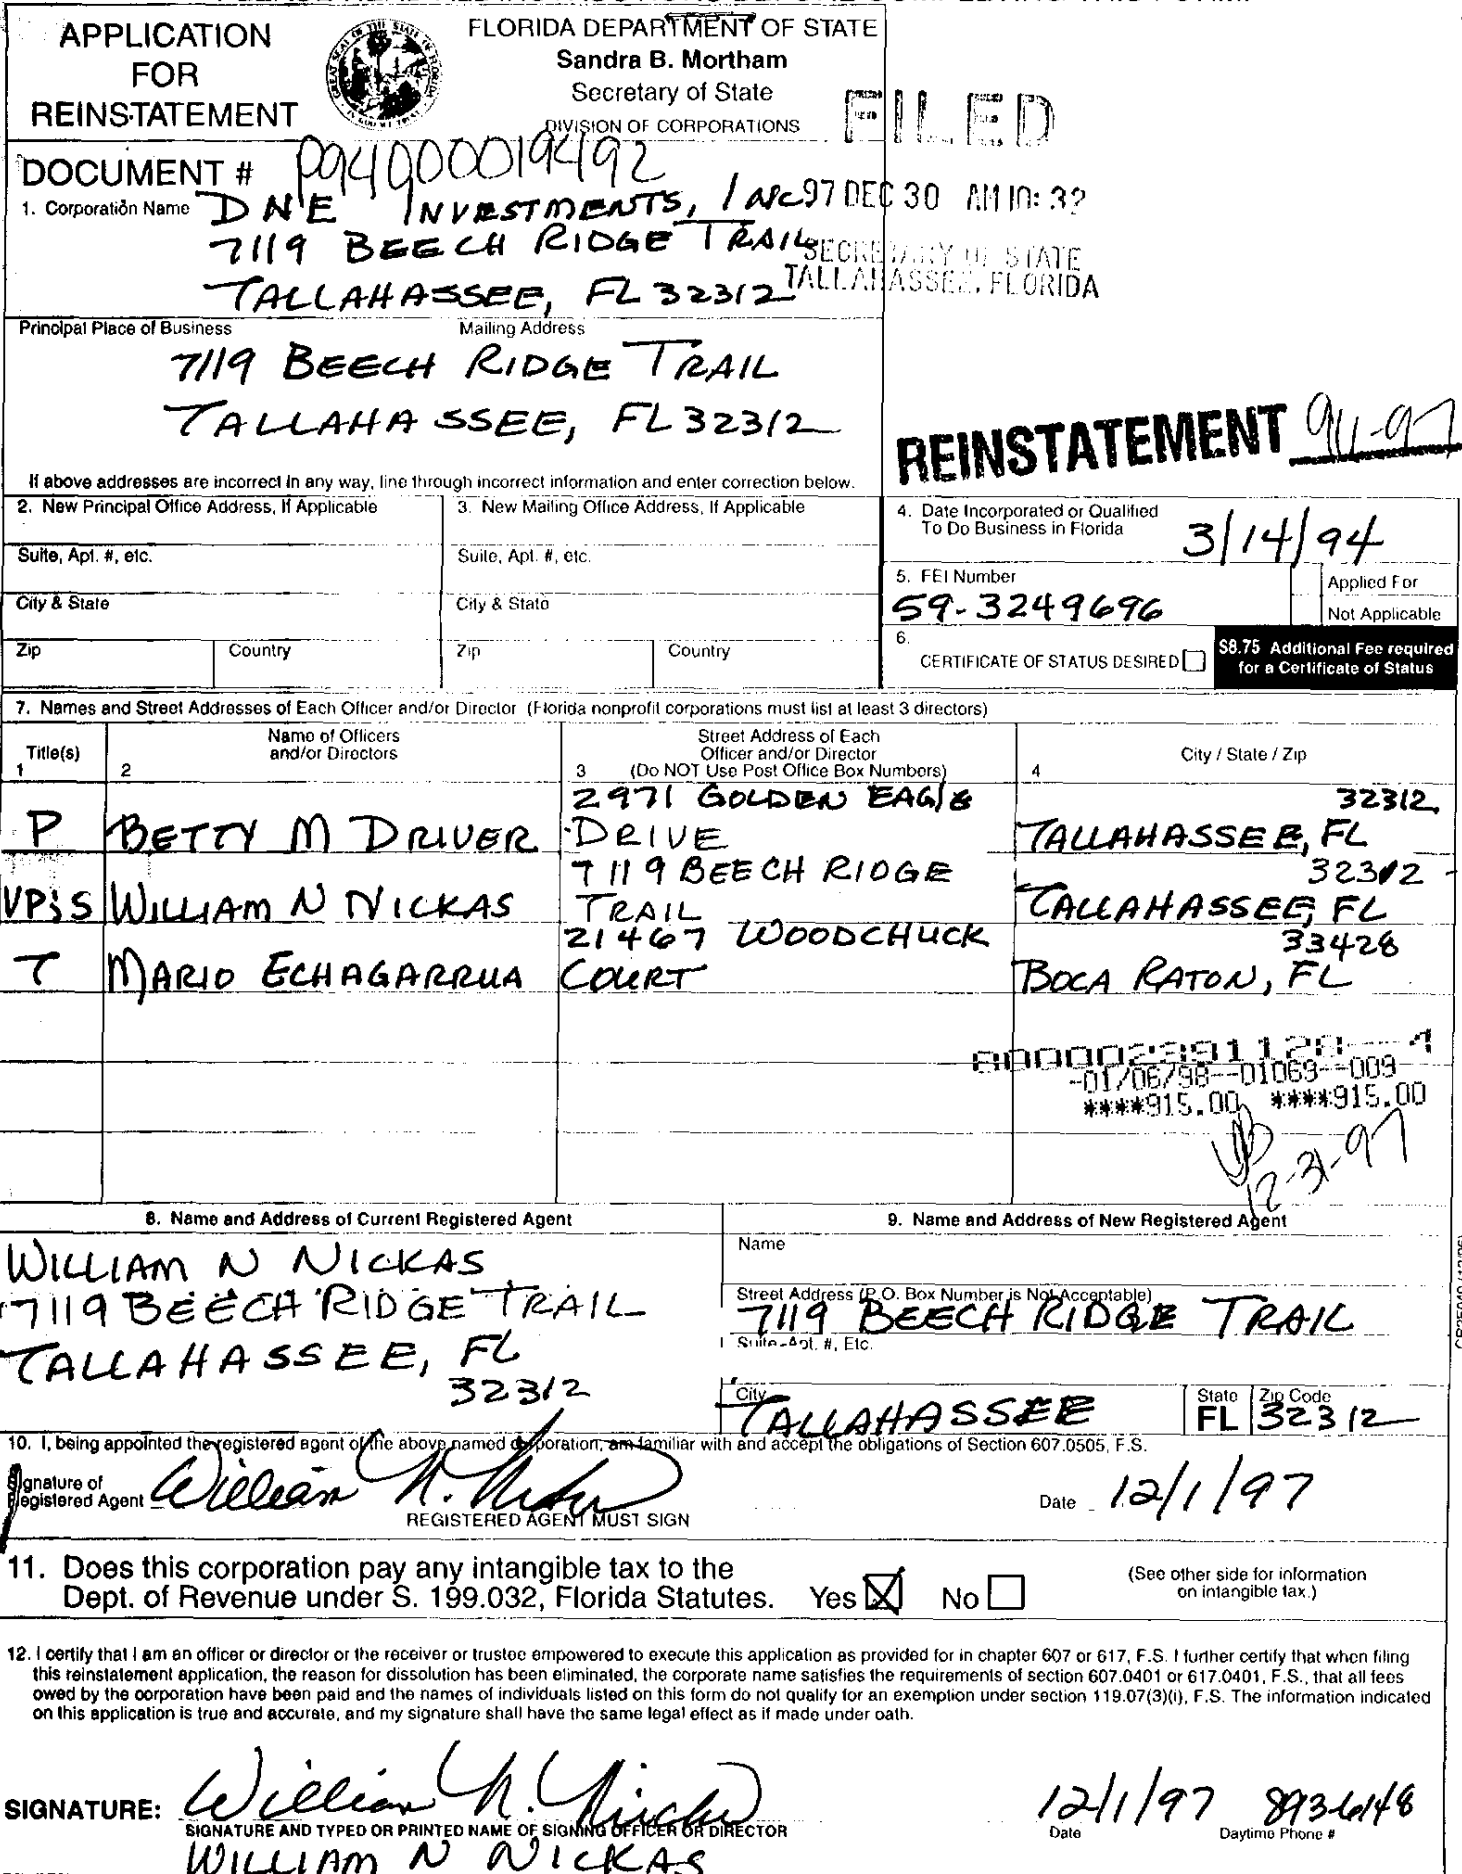 APPLICATION
FOR
REINSTATEMENT
FLORIDA DEPARTMENT OF STATE
Sandra B. Mortham
Secretary of State
DIVISION OF CORPORATIONS
FILED
97 DEC 30 AM 10:32
SECRETARY OF STATE
TALLAHASSEE, FLORIDA
DOCUMENT # P94000019492
1. Corporation Name DNE INVESTMENTS, INC
7119 BEECH RIDGE TRAIL
TALLAHASSEE, FL 32312
Principal Place of Business Mailing Address
7119 BEECH RIDGE TRAIL
TALLAHASSEE, FL 32312
REINSTATEMENT 94-97
If above addresses are incorrect in any way, line through incorrect information and enter correction below.
2. New Principal Office Address, If Applicable
Suite, Apt. #, etc.
City & State
Zip Country
3. New Mailing Office Address, If Applicable
Suite, Apt. #, etc.
City & State
Zip Country
4. Date Incorporated or Qualified
To Do Business in Florida 3/14/94
5. FEI Number
59-3249696
Applied For
Not Applicable
6.
CERTIFICATE OF STATUS DESIRED
$8.75 Additional Fee required
for a Certificate of Status
7. Names and Street Addresses of Each Officer and/or Director (Florida nonprofit corporations must list at least 3 directors)
Title(s)
1
Name of Officers
and/or Directors
2
Street Address of Each
Officer and/or Director
3 (Do NOT Use Post Office Box Numbers)
City / State / Zip
4
P BETTY M DRIVER 2971 GOLDEN EAGLE
DRIVE 32312
TALLAHASSEE, FL
VP;S WILLIAM N NICKAS 7119 BEECH RIDGE
TRAIL 32312
TALLAHASSEE, FL
T MARIO ECHAGARRUA 21467 WOODCHUCK
COURT 33428
BOCA RATON, FL
-01/06/98--01069--009
****915.00 ****915.00
12-31-97
8. Name and Address of Current Registered Agent
WILLIAM N NICKAS
7119 BEECH RIDGE TRAIL
TALLAHASSEE, FL
32312
9. Name and Address of New Registered Agent
Name
Street Address (P.O. Box Number is Not Acceptable)
7119 BEECH RIDGE TRAIL
Suite, Apt. #, Etc.
City
TALLAHASSEE
State
FL
Zip Code
32312
10. I, being appointed the registered agent of the above named corporation, am familiar with and accept the obligations of Section 607.0505, F.S.
Signature of
Registered Agent William N. Nickas
REGISTERED AGENT MUST SIGN
Date 12/1/97
11. Does this corporation pay any intangible tax to the
Dept. of Revenue under S. 199.032, Florida Statutes. Yes No
(See other side for information
on intangible tax.)
12. I certify that I am an officer or director or the receiver or trustee empowered to execute this application as provided for in chapter 607 or 617, F.S. I further certify that when filing
this reinstatement application, the reason for dissolution has been eliminated, the corporate name satisfies the requirements of section 607.0401 or 617.0401, F.S., that all fees
owed by the corporation have been paid and the names of individuals listed on this form do not qualify for an exemption under section 119.07(3)(i), F.S. The information indicated
on this application is true and accurate, and my signature shall have the same legal effect as if made under oath.
SIGNATURE: William N. Nickas 12/1/97 893-6148
SIGNATURE AND TYPED OR PRINTED NAME OF SIGNING OFFICER OR DIRECTOR Date Daytime Phone #
WILLIAM N NICKAS